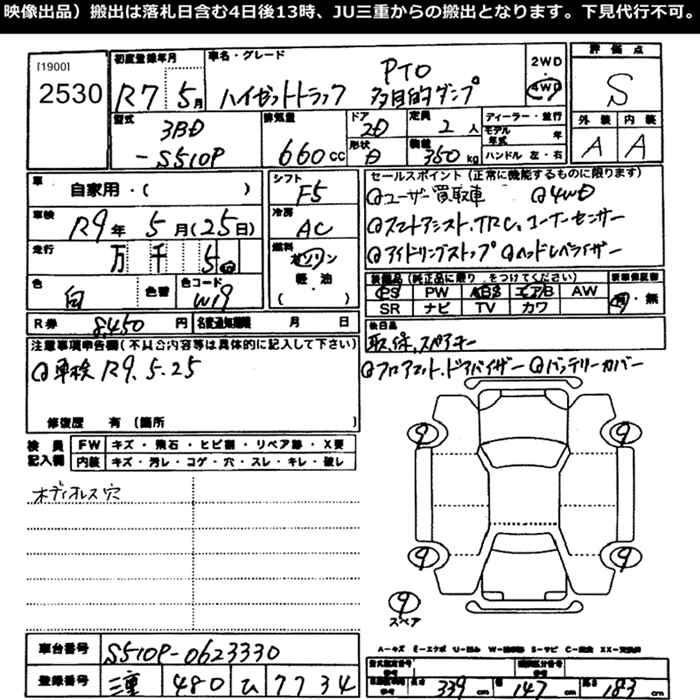 映像出品）搬出は落札日含む4日後13時、JU三重からの搬出となります。下見代行不可。
[1900]
2530
初度登録年月
R7 5月
車名・グレード
PTO
ハイゼットトラック 多目的ダンプ
2WD
4WD
評価点
S
型式
3BD
-S510P
排気量
660cc
ドア
2D
形状
定員
2人
積載
350kg
ディーラー・並行
モデル年式 年
ハンドル 左・右
外装 内装
A A
車
自家用・( )
車検
R9年 5月(25日)
走行
万 千 5
色
白
色替
色コード
W19
シフト
F5
冷房
AC
燃料
ガソリン
軽・油
( )
セールスポイント（正常に機能するものに限ります）
ユーザー買取車 4WD
スマートアシスト.TRC.コーナーセンサー
アイドリングストップ ヘッドレベライザー
装備品（純正品に限り をつけてください）
PS PW ABS エアB AW
SR ナビ TV カワ
有・無
R券 8,450円
名変通知期限 月 日
後日品
取保.スペアキー
注意事項申告欄（不具合内容等は具体的に記入して下さい）
車検 R9.5.25
フロアマット.ドアバイザー バッテリーカバー
修復歴 有（箇所 ）
検員記入欄
FW キズ・飛石・ヒビ割・リペア跡・X要
内装 キズ・汚レ・コゲ・穴・スレ・キレ・破レ
ボディオレス穴
9 9
9 9
9
スペア
A－キズ E－エクボ U－凹み W－補修跡 S－サビ C－腐食 XX－交換済
車台番号
S510P-0623330
登録番号
三重 480 ひ 7734
型式指定番号
類別区分番号
長さ 339cm 幅 147cm 高さ 183cm